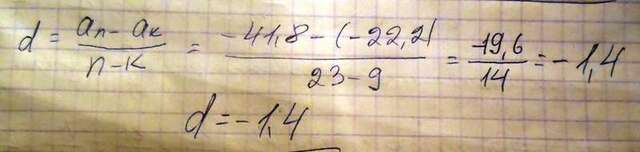 d = (aₙ - aₖ)/(n - k) = (-41,8 - (-22,2))/(23 - 9) = -19,6/14 = -1,4
d = -1,4